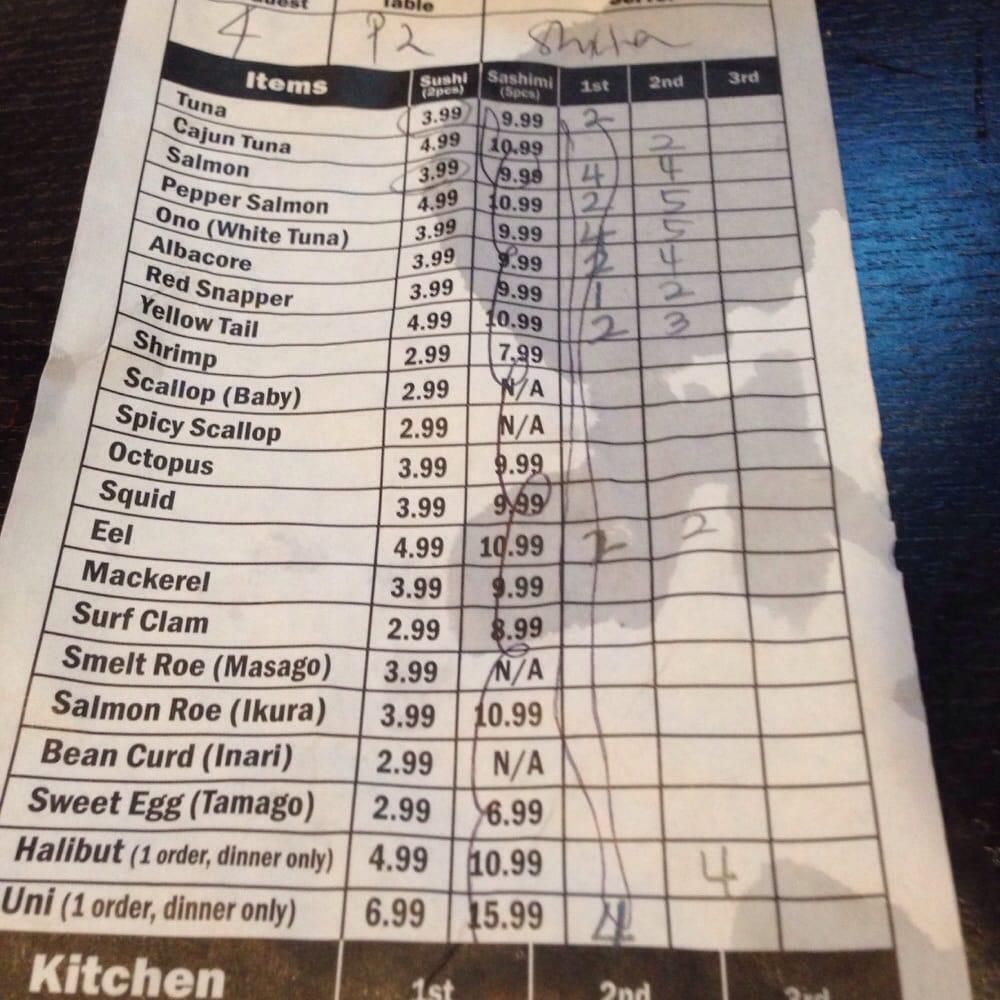 Guest Table
4 P2
Items Sushi (2pcs) Sashimi (5pcs) 1st 2nd 3rd
Tuna 3.99 9.99 2
Cajun Tuna 4.99 10.99 2
Salmon 3.99 9.99 4 4
Pepper Salmon 4.99 10.99 2 5
Ono (White Tuna) 3.99 9.99 4 5
Albacore 3.99 9.99 2 4
Red Snapper 3.99 9.99 1 2
Yellow Tail 4.99 10.99 2 3
Shrimp 2.99 7.99
Scallop (Baby) 2.99 N/A
Spicy Scallop 2.99 N/A
Octopus 3.99 9.99
Squid 3.99 9.99
Eel 4.99 10.99 2 2
Mackerel 3.99 9.99
Surf Clam 2.99 8.99
Smelt Roe (Masago) 3.99 N/A
Salmon Roe (Ikura) 3.99 10.99
Bean Curd (Inari) 2.99 N/A
Sweet Egg (Tamago) 2.99 6.99
Halibut (1 order, dinner only) 4.99 10.99 4
Uni (1 order, dinner only) 6.99 15.99 4
Kitchen 1st 2nd 3rd